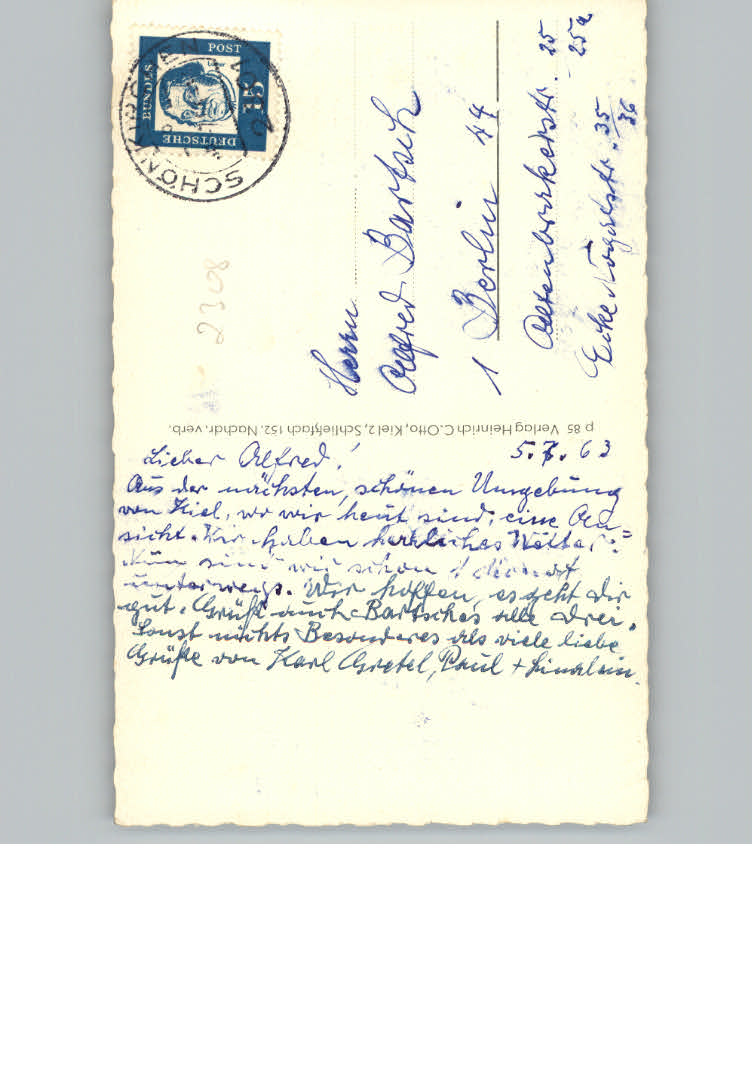 Lieber Alfred!
5.7.63
Aus der nächsten, schönen Umgebung
von Kiel, wo wir heut sind, eine An=
sicht. Wir haben herrliches Wetter.
Nun sind wir schon 1 Monat
unterwegs. Wir hoffen, es geht Dir
gut. Grüße auch Bartsches alle drei.
Sonst nichts Besonderes als viele liebe
Grüße von Karl Gretel, Paul +
p 85 Verlag Heinrich C. Otto, Kiel 2, Schließfach 152. Nachdr. verb.
Herrn
Alfred Bartsch
1 Berlin 44
25
25a
Ecke 35/36
2308
DEUTSCHE
BUNDES
POST
15
SCHÖNKIRCHEN